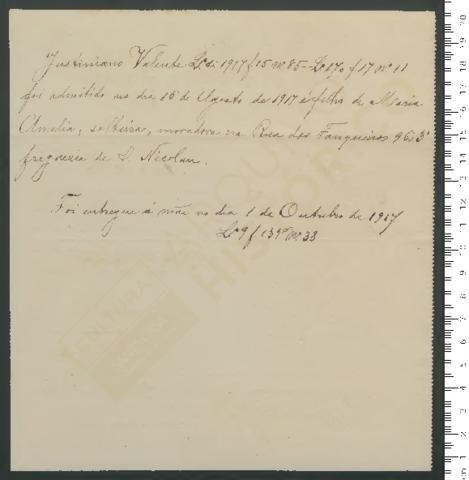 Justiniano Valente Lº di 1917 f 15 nº 85 - Lº 17 o f 17 nº 11
foi admitido no dia 15 de Agosto de 1917 é filho de Maria
Amelia, solteira, moradora na Rua dos Fanqueiros 96, 3º
freguezia de S. Nicolau.
Foi entregue á mãe no dia 1 de Outubro de 1917
Lº 9 f 139 nº 33